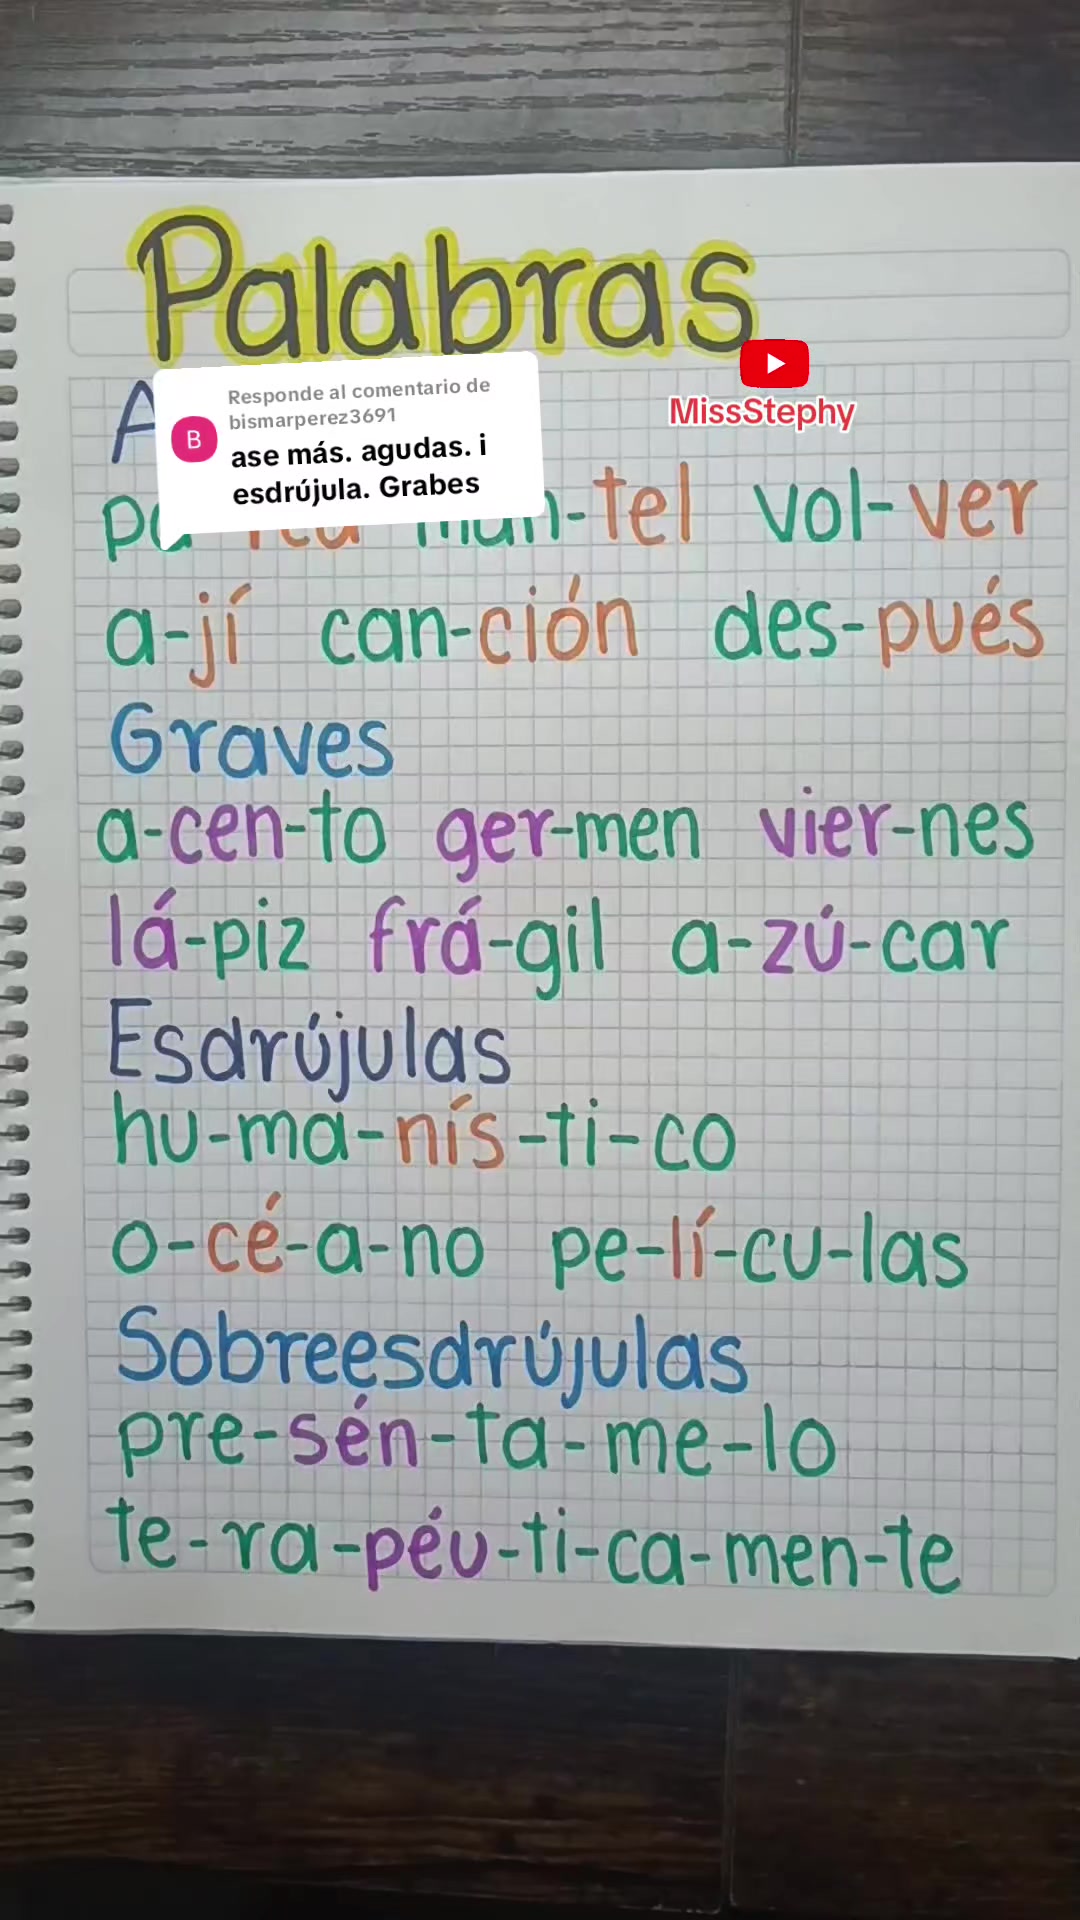 Palabras
Responde al comentario de
bismarperez3691
ase más. agudas. i
esdrújula. Grabes
MissStephy
-tel vol-ver
a-jí can-ción des-pués
Graves
a-cen-to ger-men vier-nes
lá-piz frá-gil a-zú-car
Esdrújulas
hu-ma-nís-ti-co
o-cé-a-no pe-lí-cu-las
Sobreesdrújulas
pre-sén-ta-me-lo
te-ra-péu-ti-ca-men-te